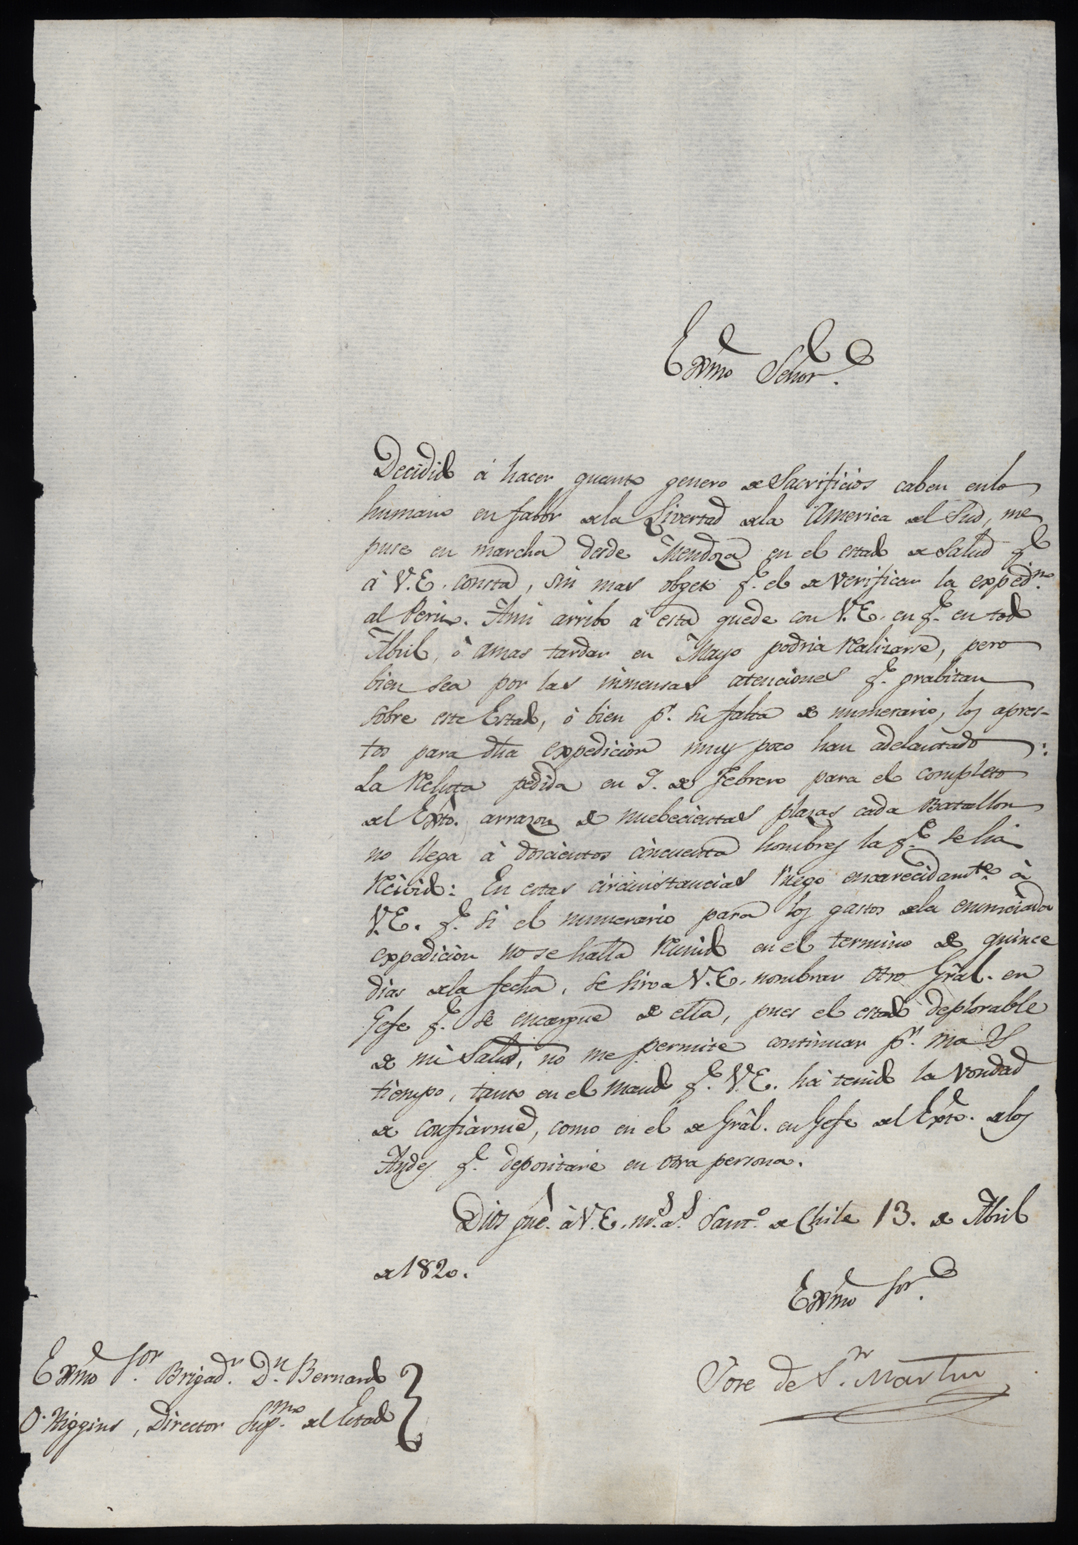 Exmo Señor.
Decidido á hacer quanto genero de Sacrificios caben enlo
humano en fabor dela Livertad dela America del Sud, me
puse en marcha desde Mendoza en el estado de Salud qe
á V.E. consta, sin mas obgeto qe. el de verificar la expedn.
al Perú. Ami arribo á esta quede con V.E. en qe. en todo
Abril, ò amas tardar en Mayo podria realizarse, pero
bien sea por las inmensas atenciones qe. grabitan
sobre este Estado, ò bien pr. su falta de numerario, los apres-
tos para dha expedición muy poco han adelantado:
La Recluta pedida en de Febrero para el completo
del Exto. arrazon de nuebecientas plazas cada Batallon
no llega à doscientos cincuenta hombres la qe. se há
recivido: En estas circunstancias ruego encarecidamte. à
V.E. qe. si el numerario para los gastos dela enunciada
expedición no se halla reunido en el termino de quince
dias dela fecha, se sirva V.E. nombrar otro Gral. en
Gefe qe. se encargue de ella, pues el estado deplorable
de mi Salud, no me permite continuar pr. mas
tiempo, tanto en el mando qe. V.E. há tenido la vondad
de confiarme, como en el de Gràl. en Gefe del Exto. delos
Andes qe. depositaré en otra persona.
Dios gue. à V.E. ms. as. Santo. de Chile 13. de Abril
de 1820.
Exmo Sor.
Jose de Sn. Martin
Exmo Sor. Brigadr. Dn. Bernardo
O'Higgins, Director Supmo. del Estado